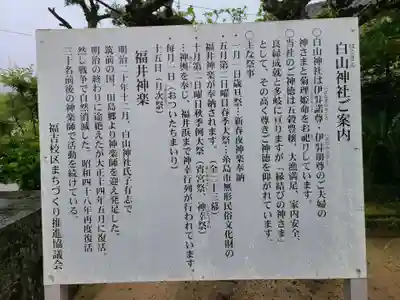 白山神社ご案内
はくさん
◇白山神社は伊弉諾尊・伊弉冊尊のご夫婦の
神さまと菊理姫命をお祀りしています。
◇当社のご神徳は五穀豊穣、大漁満足、家内安全、
良縁成就と多岐に亘りますが「縁結びの神さま」
として、その高く尊きご神徳を仰がれています。
◇主な祭事
一月二日歳旦祭・新春夜神楽奉納
五月第二日曜日春季大祭…糸島市無形民俗文化財の
福井神楽が奉納されます。(全二十三幕)
十月第二日曜日秋季例大祭(宵宮祭、神幸祭)
…神輿を奉じ、福井浜まで神幸行列が行われています。
毎月一日(おついたちまいり)
十五日(月次祭)
福井神楽
明治二十年十二月、白山神社氏子有志で
筑前の旧・田島郷より神楽師を迎え発足した。
明治の終わりに途絶えたが大正十四年五月に復活、
然し戦争で自然消滅した。昭和四十八年再度復活
三十名前後の神楽師で活動を続けている。
福吉校区まちづくり推進協議会